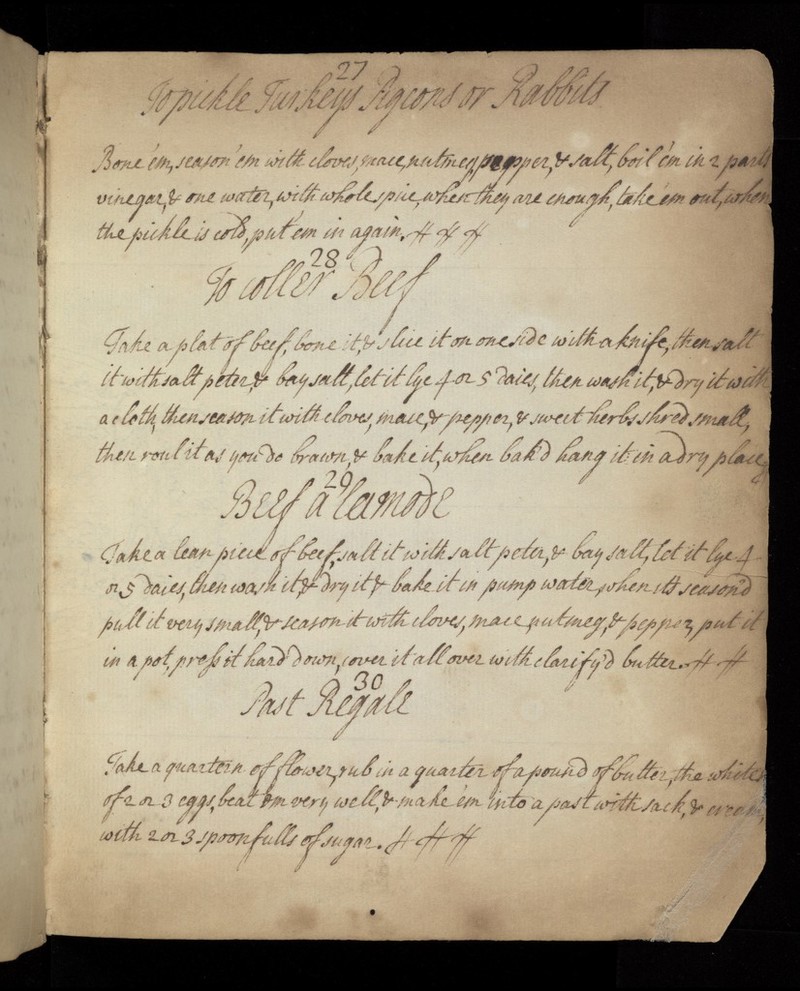 27
To pickle Turkeys Pigeons or Rabbits
Bone 'em, season 'em with cloves, mace, nutmeg, pepper, & salt, boil 'em in 2 parts
vinegar, & one water, with whole spice, when they are enough, take 'em out, when
the pickle is cold, put 'em in again.
28
To coller Beef
Take a plat of beef, bone it, & slice it on one side with a knife, then salt
it with salt peter, & bay salt, let it lye 4 or 5 daies, then wash it, & dry it with
a cloth, then season it with cloves, mace, & pepper, & sweet herbs shred small,
then roul it as you do brawn, & bake it, when bak'd hang it in a dry place
29
Beef a'lamode
Take a lean piece of beef, salt it with salt peter, & bay salt, let it lye 4
or 5 daies, then wash it & dry it & bake it in pump water, when its season'd
pull it very small, & season it with cloves, mace, nutmeg, & pepper, put it
in a pot, press it hard down, cover it all over with clarify'd butter.
30
Past Regale
Take a quartern of flower, rub in a quarter of a pound of butter, the whites
of 2 or 3 eggs, beat em very well, & make 'em into a past with sack, & cream,
with 2 or 3 spoonfulls of sugar.